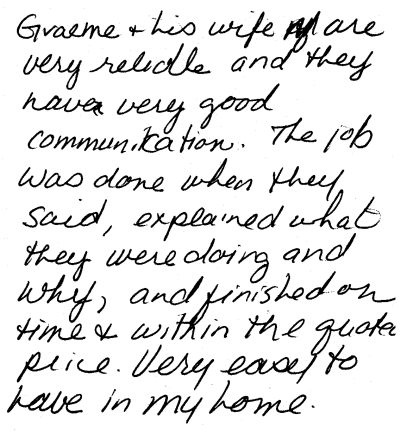 Graeme + his wife are
very reliable and they
have very good
communication. The job
was done when they
said, explained what
they were doing and
why, and finished on
time & within the quoted
price. Very easy to
have in my home.